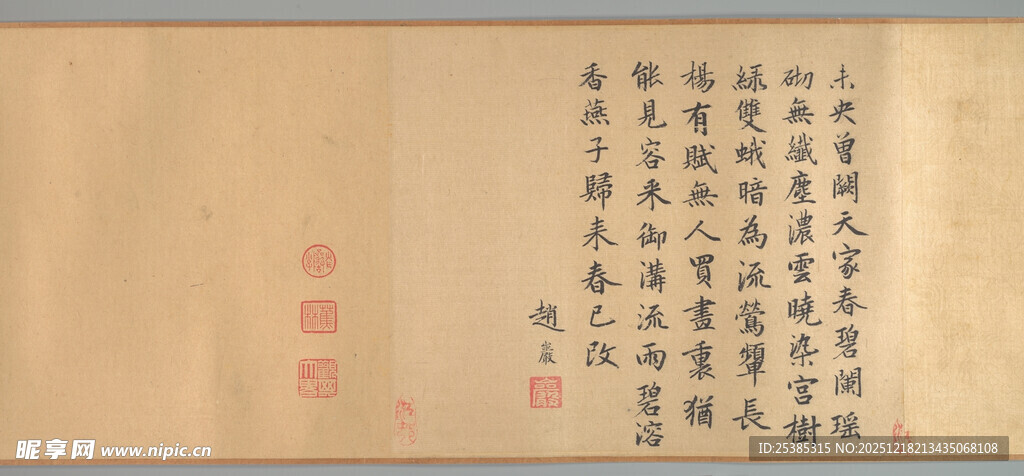 未央曾闕天家春碧闌瑶
砌無纖塵濃雲曉染宫樹
緑雙蛾暗為流鶯顰長
楊有賦無人買畫裏猶
能見容采御溝流雨碧溶
香燕子歸来春已改
趙巖
昵享网 www.nipic.cn
ID:25385315 NO:20251218213435068108